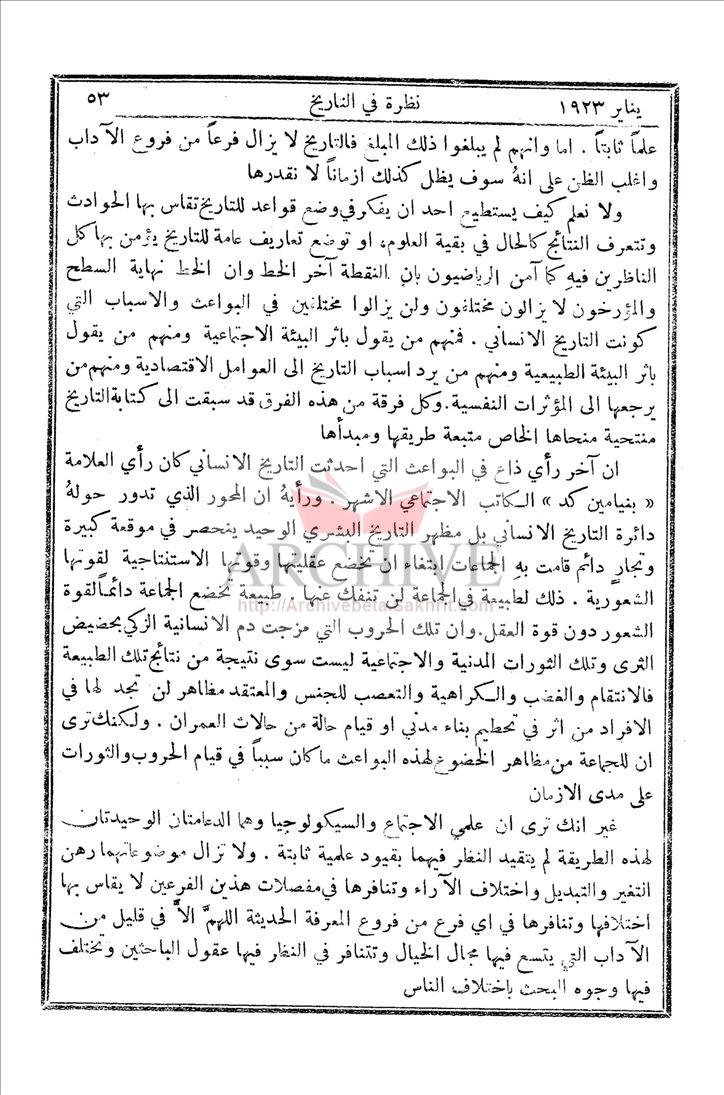 يناير ١٩٢٣ نظرة في التاريخ ٥٣
علماً ثابتاً . اما وانهم لم يبلغوا ذلك المبلغ فالتاريخ لا يزال فرعاً من فروع الآداب
واغلب الظن على انهُ سوف يظل كذلك ازماناً لا نقدرها
ولا نعلم كيف يستطيع احد ان يفكر في وضع قواعد للتاريخ تقاس بها الحوادث
وتتعرف النتائج كالحال في بقية العلوم، او توضع تعاريف عامة للتاريخ يؤمن بها كل
الناظرين فيهِ كما آمن الرياضيون بان النقطة آخر الخط وان الخط نهاية السطح
والمؤرخون لا يزالون مختلفون ولن يزالوا مختلفين في البواعث والاسباب التي
كونت التاريخ الانساني . فمنهم من يقول باثر البيئة الاجتماعية ومنهم من يقول
باثر البيئة الطبيعية ومنهم من يرد اسباب التاريخ الى العوامل الاقتصادية ومنهم من
يرجعها الى المؤثرات النفسية. وكل فرقة من هذه الفرق قد سبقت الى كتابة التاريخ
منتحية منحاها الخاص متبعة طريقها ومبدأها
ان آخر رأي ذاع في البواعث التي احدثت التاريخ الانساني كان رأي العلامة
« بنيامين كد » الكاتب الاجتماعي الاشهر . ورأيهُ ان المحور الذي تدور حولهُ
دائرة التاريخ الانساني بل مظهر التاريخ البشري الوحيد ينحصر في موقعة كبيرة
وتجارٍ دائم قامت بهِ الجماعات ابتغاء ان تخضع عقليتها وقوتها الاستنتاجية لقوتها
الشعورية . ذلك لطبيعة في الجماعة لن تنفك عنها . طبيعة تخضع الجماعة دائماً لقوة
الشعور دون قوة العقل. وان تلك الحروب التي مزجت دم الانسانية الزكي بحضيض
الثرى وتلك الثورات المدنية والاجتماعية ليست سوى نتيجة من نتائج تلك الطبيعة
فالانتقام والغضب والكراهية والتعصب للجنس والمعتقد مظاهر لن تجد لها في
الافراد من اثر في تحطيم بناء مدني او قيام حالة من حالات العمران . ولكنك ترى
ان للجماعة من مظاهر الخضوع لهذه البواعث ما كان سبباً في قيام الحروب والثورات
على مدى الازمان
غير انك ترى ان علمي الاجتماع والسيكولوجيا وهما الدعامتان الوحيدتان
لهذه الطريقة لم يتقيد النظر فيهما بقيود علمية ثابتة . ولا تزال موضوعاتهما رهن
التغير والتبديل واختلاف الآراء وتنافرها في مفصلات هذين الفرعين لا يقاس بها
اختلافها وتنافرها في اي فرع من فروع المعرفة الحديثة اللهمَّ الاَّ في قليل من
الآداب التي يتسع فيها مجال الخيال وتتنافر في النظر فيها عقول الباحثين وتختلف
فيها وجوه البحث باختلاف الناس
ARCHIVE
http://Archivebeta.Sakhrit.com